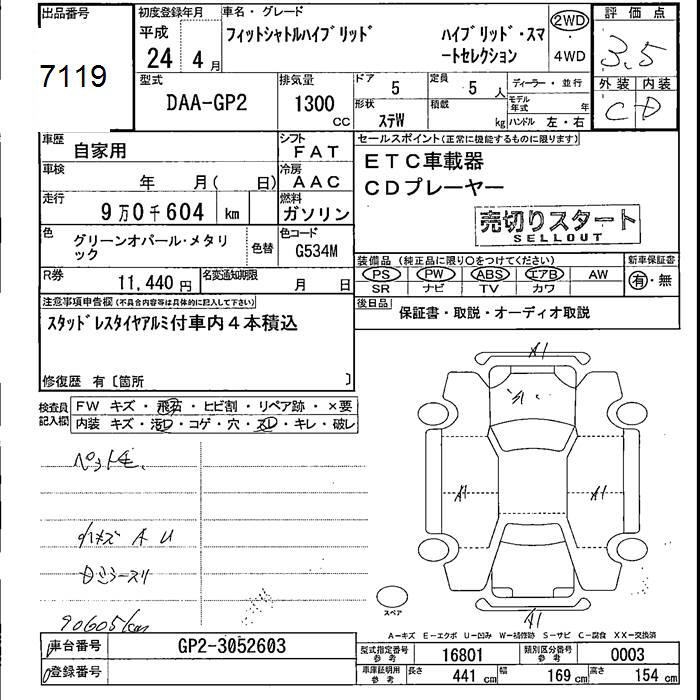 出品番号
7119
初度登録年月
平成
24年 4月
車名・グレード
フィットシャトルハイブリッド
ハイブリッド・スマートセレクション
2WD
4WD
評価点
3.5
外装 内装
C D
型式
DAA-GP2
排気量
1300
CC
ドア
5
定員
5人
形状
ステW
積載
kg
ディーラー・並行
モデル年式 年
ハンドル 左・右
車歴
自家用
シフト
FAT
車検
年 月( 日)
冷房
AAC
走行
9万0千604 km
燃料
ガソリン
色
グリーンオパール・メタリック
色替
色コード
G534M
R券
11,440円
名変通知期限
月 日
セールスポイント(正常に機能するものに限ります)
ETC車載器
CDプレーヤー
売切りスタート
SELLOUT
装備品 (純正品に限り○をつけてください)
PS PW ABS エアB AW
SR ナビ TV カワ
新車保証書
有・無
後日品
保証書・取説・オーディオ取説
注意事項申告欄(不具合内容等は具体的に記入して下さい)
スタッドレスタイヤアルミ付車内4本積込
修復歴 有〔箇所 〕
検査員記入欄
FW キズ・飛石・ヒビ割・リペア跡・×要
内装 キズ・汚レ・コゲ・穴・スレ・キレ・破レ
ペット毛
小キズ A U
90605km
A1
A1
A1
A1
A1
スペア
A-キズ E-エクボ U-凹み W-補修跡 S-サビ C-腐食 XX-交換済
車台番号
GP2-3052603
登録番号
型式指定番号
参考
16801
類別区分番号
参考
0003
車庫証明用
参考
長さ
441 cm
幅
169 cm
高さ
154 cm